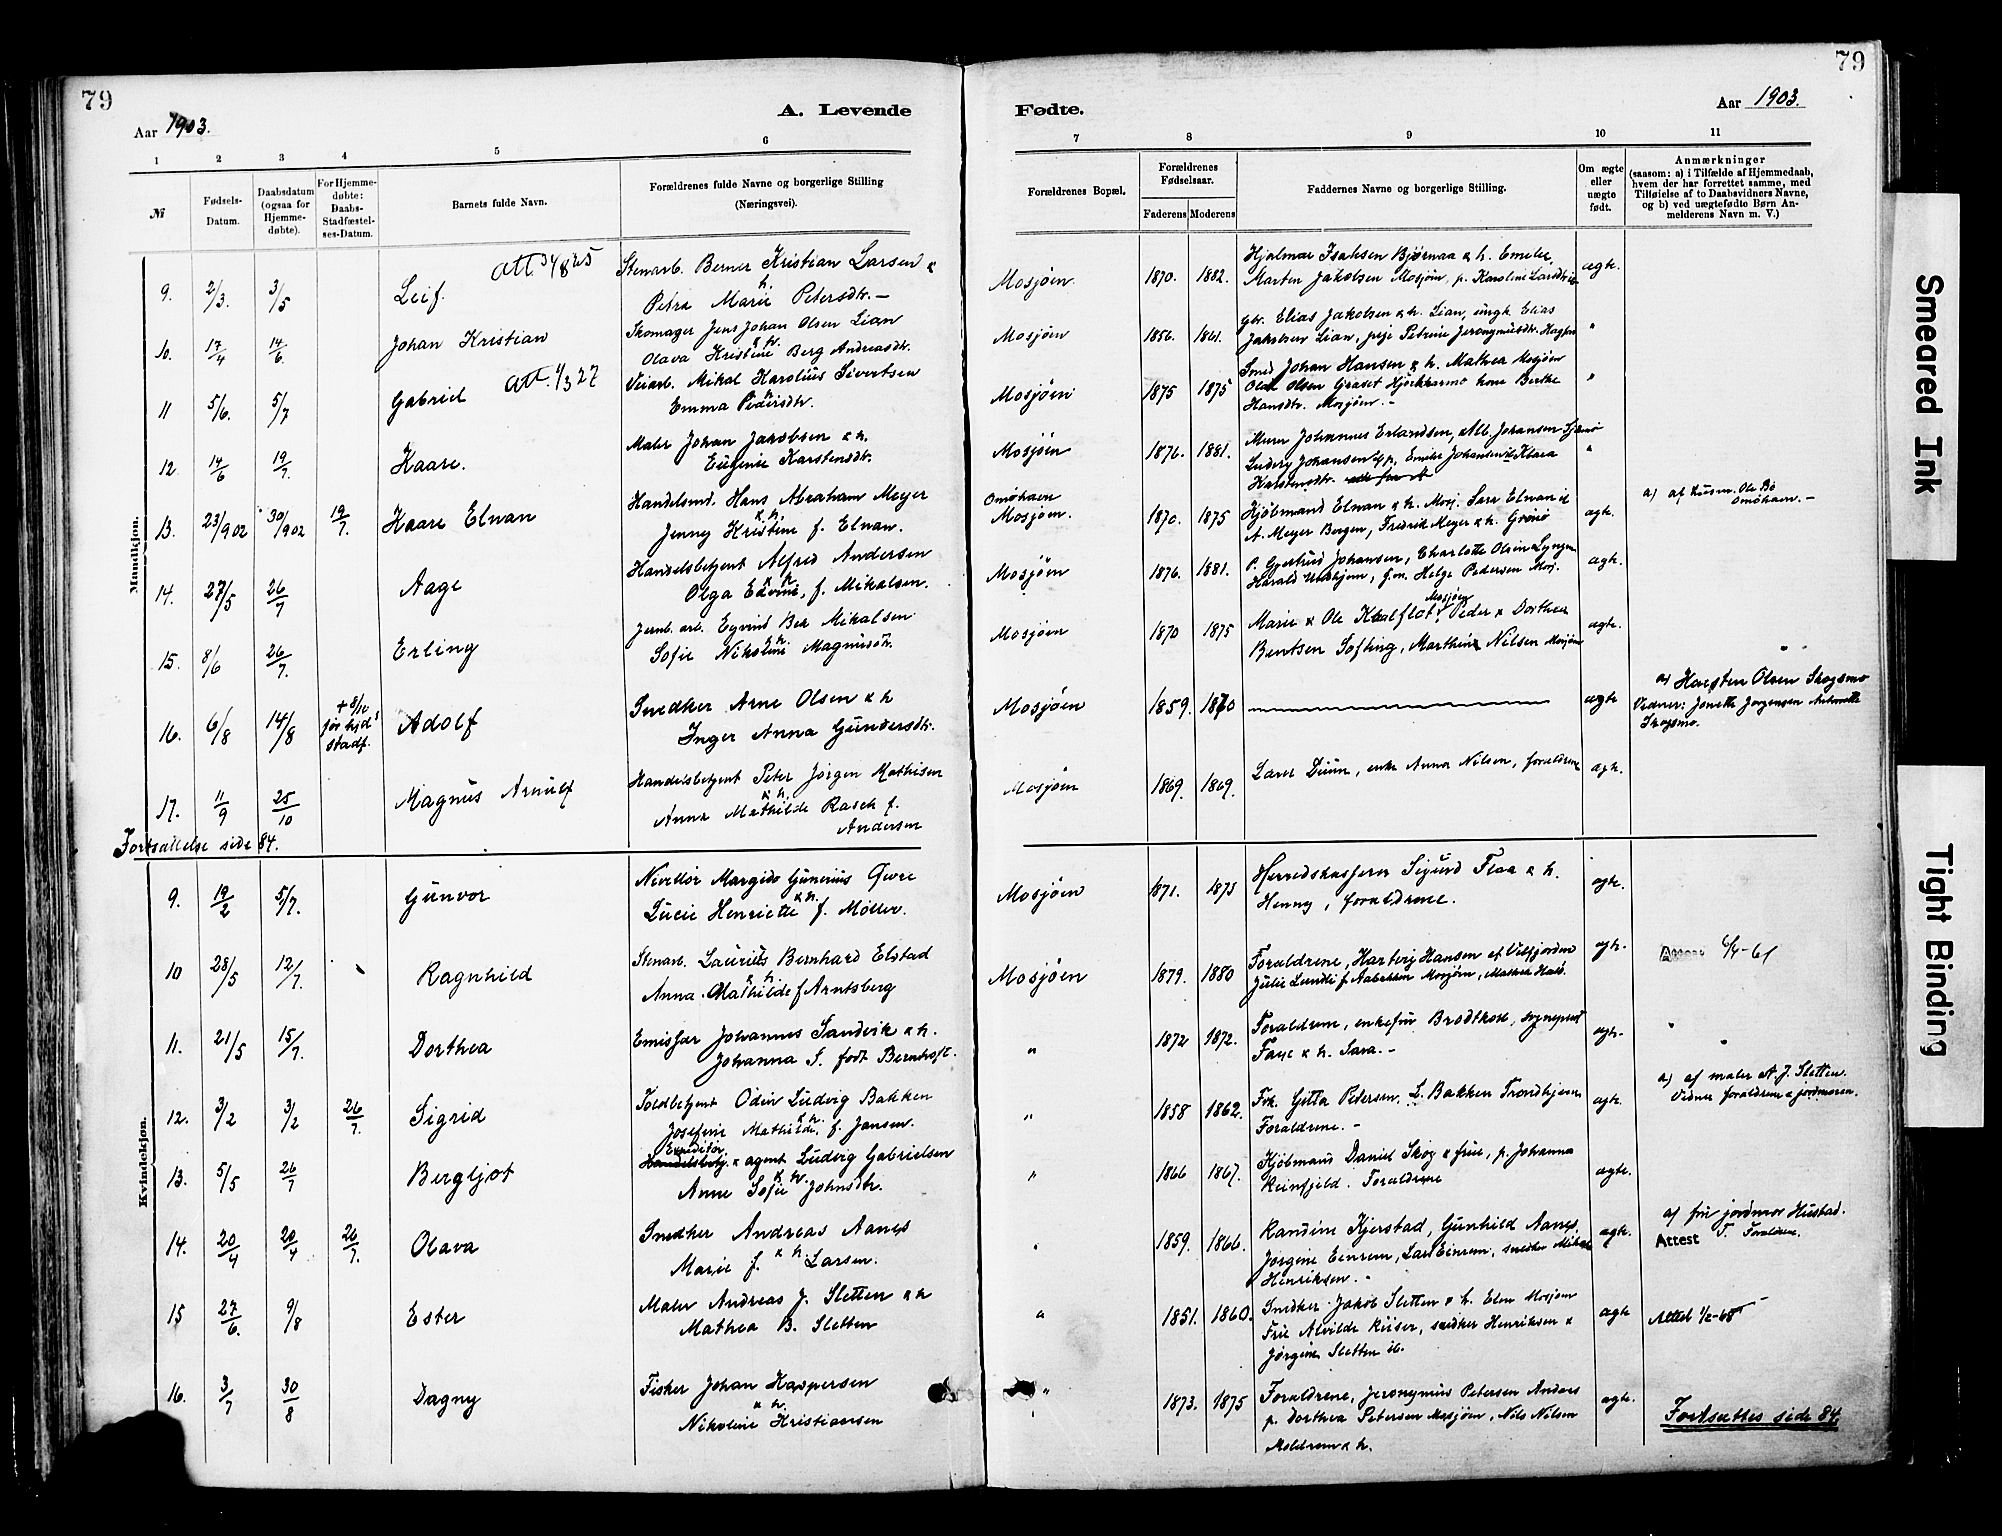 79
79
Aar 1903.
A. Levende
Fødte.
Aar 1903.
1 2 3 4 5 6 7 8 9 10 11
№
Fødsels-Datum.
Daabsdatum (ogsaa for Hjemme-døbte).
For Hjemme-døbte: Daabs-Stadfæstel-ses-Datum.
Barnets fulde Navn.
Forældrenes fulde Navne og borgerlige Stilling (Næringsvei).
Forældrenes Bopæl.
Forældrenes Fødselsaar.
Faderens Moderens
Faddernes Navne og borgerlige Stilling.
Om ægte eller uægte født.
Anmærkninger (saasom: a) i Tilfælde af Hjemmedaab, hvem der har forrettet samme, med Tilføielse af to Daabsvidners Navne, og b) ved uægtefødte Børn An-melderens Navn m. V.)
Mandkjøn.
9. 2/3. 3/5 Leif. Stenarb. Berner Kristian Larsen & h. Mosjøen. 1870. 1882. Hjalmar Isaksen Bjørnaa & h. Emelie, ægte.
Petra Marie Petersdtr. – Marten Jakobsen Mosjøen, p. Karoline
10. 17/4 14/6. Johan Kristian Skomager Jens Johan Olsen Lian & h. Mosjøen 1856. 1861. Gbr. Elias Jakobsen & h. Lian, ungk. Elias "
Olava Kristine Berg Andreasdtr. Jakobsen Lian, pige Petrine Jeronymusdtr.
11 5/6. 5/7 Gabriel Att. 1/3 27 Veiarb. Mikal Karolius Sivertsen Mosjøen 1875 1875 Smed Johan Hansen & h. Mathea Mosjøen "
Emma Pedersdtr. Olsen Hjerkkarmo kone Berthe
Hansdtr. Mosjøen. –
12. 14/6 19/7. Kaare. Maler Johan Jakobsen & h. Mosjøen 1876. 1881. Murer Johannes Erlandsen, Alb. Johansen "
Eugenie Karstensdtr. Ludvig Johansen Emilie Johansen Klara
Karstensdtr.
13. 23/9 02 30/9 02 19/7. Kaare Elnan Handelsmd. Hans Abraham Meyer & h. Omøhavn Mosjøen. 1870. 1875 Kjøbmand Elnan & h. Mosj. Sara Elnan ægte. a) af Ole Bø Omøhavn. –
Jenny Kristine f. Elnan. A. Meyer Bergen, Fredrik Meyer & h. Grønø
14. 27/5 26/7 Aage Handelsbetjent Alfred Andersen & h. Mosjøen 1876. 1881. P. Gjertrud Johansen, Charlotte Olsen Lyngen ægte.
Olga Edvine, f. Mikalsen. Harald g.m. Helge Pedersen Mosj.
15. 8/6 26/7. Erling Jernb. arb. Eyvind Mikalsen & h. Mosjøen 1870 1875 Marie & Ole Kaalflot, Mosjøen, Peder & Dorthea ægte.
Sofie Nikoline Magnusdtr. Bentsen Søfting, Marthine Nilsen Mosjøen
16. 6/8 14/8 + 8/10 før stadf. Adolf Snedker Arne Olsen & h Mosjøen 1859. 1870 ægte a) Olsen Skogsmo
Inger Anna Gundersdtr. Vidner: Jonette Jørgensen Antonette Skogsmo.
17. 11/9 25/10 Magnus Arnulf Handelsbetjent Peter Jørgen Mathisen & h. Mosjøen 1869. 1869. Lærer Duun, enke Anna Nilsen, forældrene ægte.
Anna Mathilde Rasch f. Andersen
Fortsættelse side 84.
Kvindekjøn.
9. 19/2 5/7. Gunvor Margido Gunerius Qvre & h. Mosjøen 1871. 1875 Herredskasserer Sigurd Flaa & h. ægte.
Lucie Henriette f. Møller. Henny, forældrene.
10 28/5 12/7. Ragnhild Stenarb. Laurius Bernhard Elstad & h. Mosjøen 1879. 1880 Forældrene, Hartvig Hansen af Velfjorden ægte. 6/4-61
Anna Mathilde f Arntsberg Julie Lundli f. Mosjøen, Mathea
11. 21/5 15/7. Dorthea Emissær Johannes Sandvik & h. " 1872 1872. Forældrene, enkefru Brodtkorb, sogneprest ægte.
Johanna S. født Bernhoft. Faye & h. Sara. –
12. 3/2 3/2 26/7. Sigrid Toldbetjent Odin Ludvig Bakken & h. " 1858 1862. Frk. Gitta Petersen. L. Bakken Trondhjem ægte. a) af maler A. J. Sletten.
Josefine Mathilde, f. Jansen. Forældrene. – Vidner forældrene & jordmoren.
13. 5/5 26/7 Bergljot Expeditør & agent Ludvig Gabrielsen & h. " 1866 1867. Kjøbmand Daniel Skog & frue, p. Johanna ægte.
Anne Sofie Johnsdtr. Reinfjeld. Forældrene
14. 20/4 20/4 26/7. Olava Snedker Andreas Aanes & h. " 1859. 1866. Randine Kjerstad, Gunhild Aanes, ægte. a) fru jordmor Hustad.
Marie f. Larsen. Jørgine Einrem, Lars Einrem, snedker Mikal Henriksen. – Attest Forældrene.
15 27/6. 9/8 Ester Maler Andreas J. Sletten & h " 1851. 1860. Snedker Jakob Sletten & h. Elen Mosjøen ægte Attest 1/2-68
Mathea B. Sletten Frue Alvilde Riiser, snedker Henriksen &
Jørgine Sletten ib.
16. 3/7 30/8 Dagny Fisker Johan Kaspersen & h. " 1873. 1875 Forældrene, Jeronymus Petersen Anders ægte.
Nikoline Kristiansen p. Dorthea Petersen Mosjøen, Nils Nilsen
Meldrem & h.
Fortsættes side 84.
Smeared Ink
Tight Binding